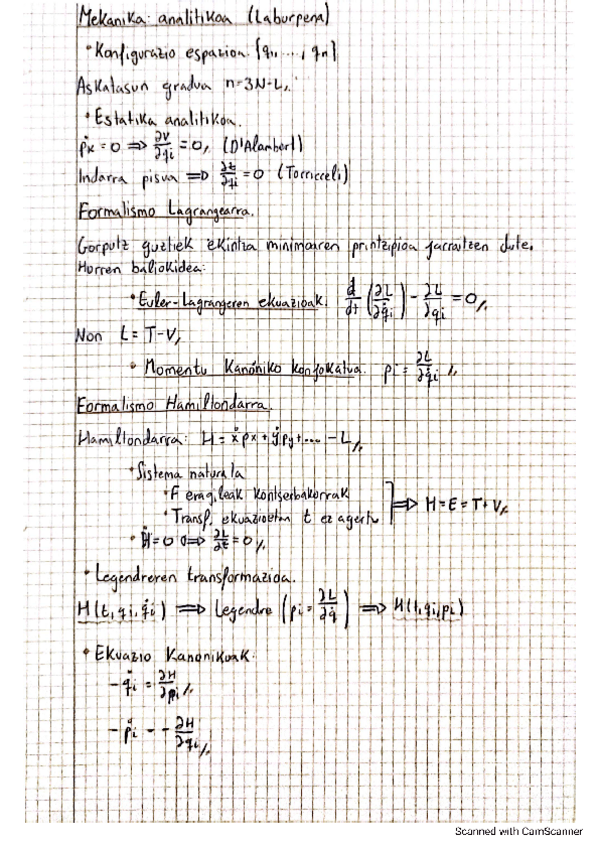 Mekanika analitikoa (Laburpena)
• Konfigurazio espazioa. {q₁, ..., qn}
Askatasun gradua n=3N-L//.
• Estatika analitikoa.
ṗx = 0 ⇒ ∂V/∂qi = 0// (D'Alambert)
Indarra pisua ⇒ ∂z/∂qi = 0 (Torricceli)
Formalismo Lagrangearra.
Gorputz guztiek ekintza minimoaren printzipioa jarraitzen dute.
Horren baliokidea:
• Euler-Lagrangeren ekuazioak. d/dt (∂L/∂q̇i) - ∂L/∂qi = 0//
Non L = T-V//
• Momentu Kanóniko konjokatua. pi = ∂L/∂q̇i //
Formalismo Hamiltondarra.
Hamiltondarra: H = ẋpx + ẏpy + .... - L//
• Sistema naturala
• F eragileak kontserbakorrak
• Transf. ekuazioetan t ez agertu ⇒ H = E = T + V//
• Ḣ = 0 ⇔ ∂L/∂t = 0//
• Legendreren transformazioa.
H(t, qi, q̇i) ⇒ Legendre (pi = ∂L/∂q̇) ⇒ H(t, qi, pi)
• Ekuazio Kanonikoak.
- q̇i = ∂H/∂pi //
- ṗi = - ∂H/∂qi //
Scanned with CamScanner